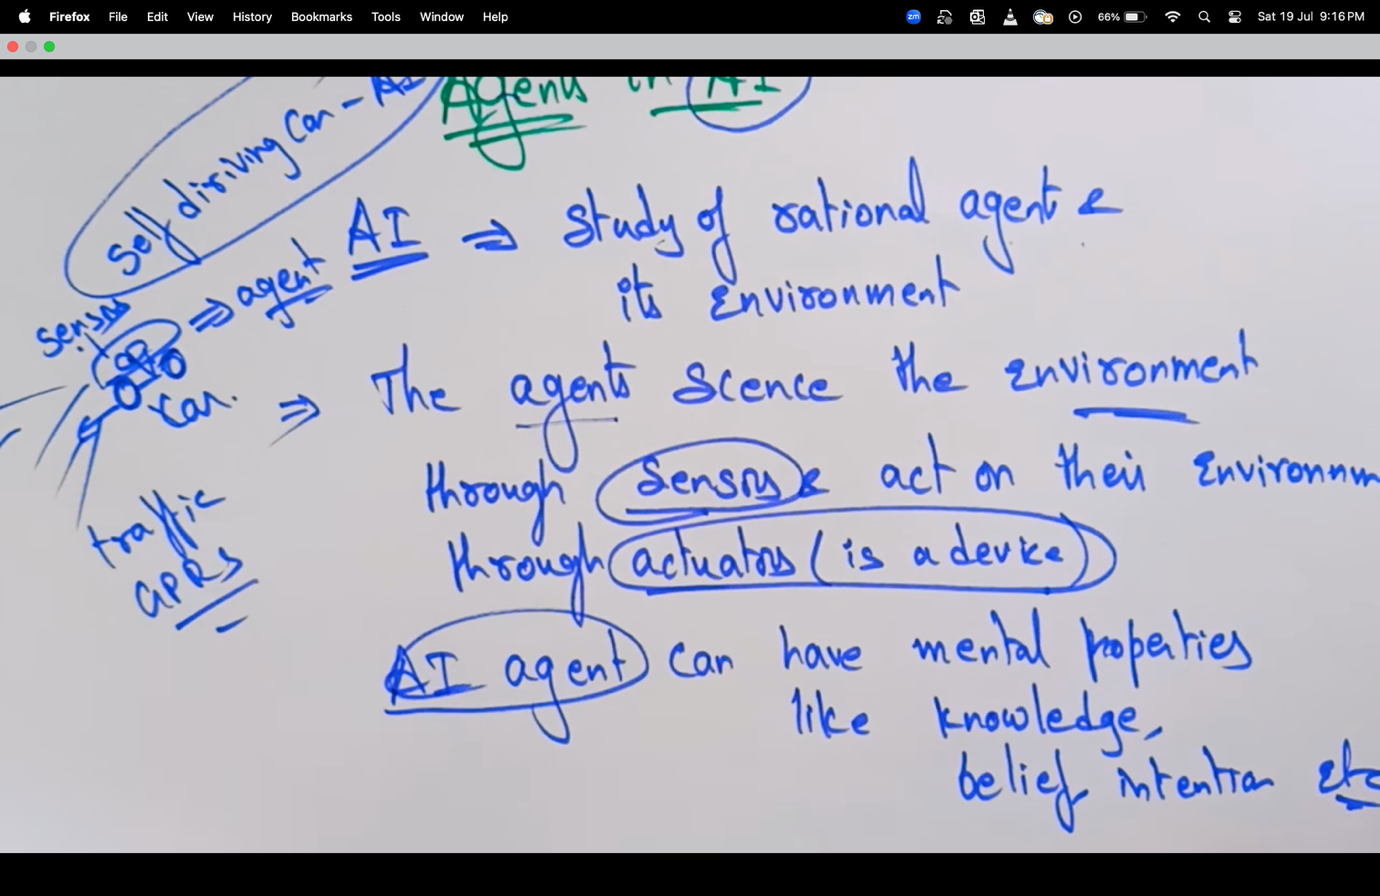 Firefox File Edit View History Bookmarks Tools Window Help zm 66% Sat 19 Jul 9:16 PM
Agents in AI
Self diriving Car - AI
AI ⇒ Study of rational agent &
its Environment
sensor ⇒ agent
car
⇒ The agents Scence the Environment
through Sensors & act on their Environnm
through actuators ( is a device )
traffic
GPRS
AI agent can have mental properties
like knowledge,
belief, intention etc